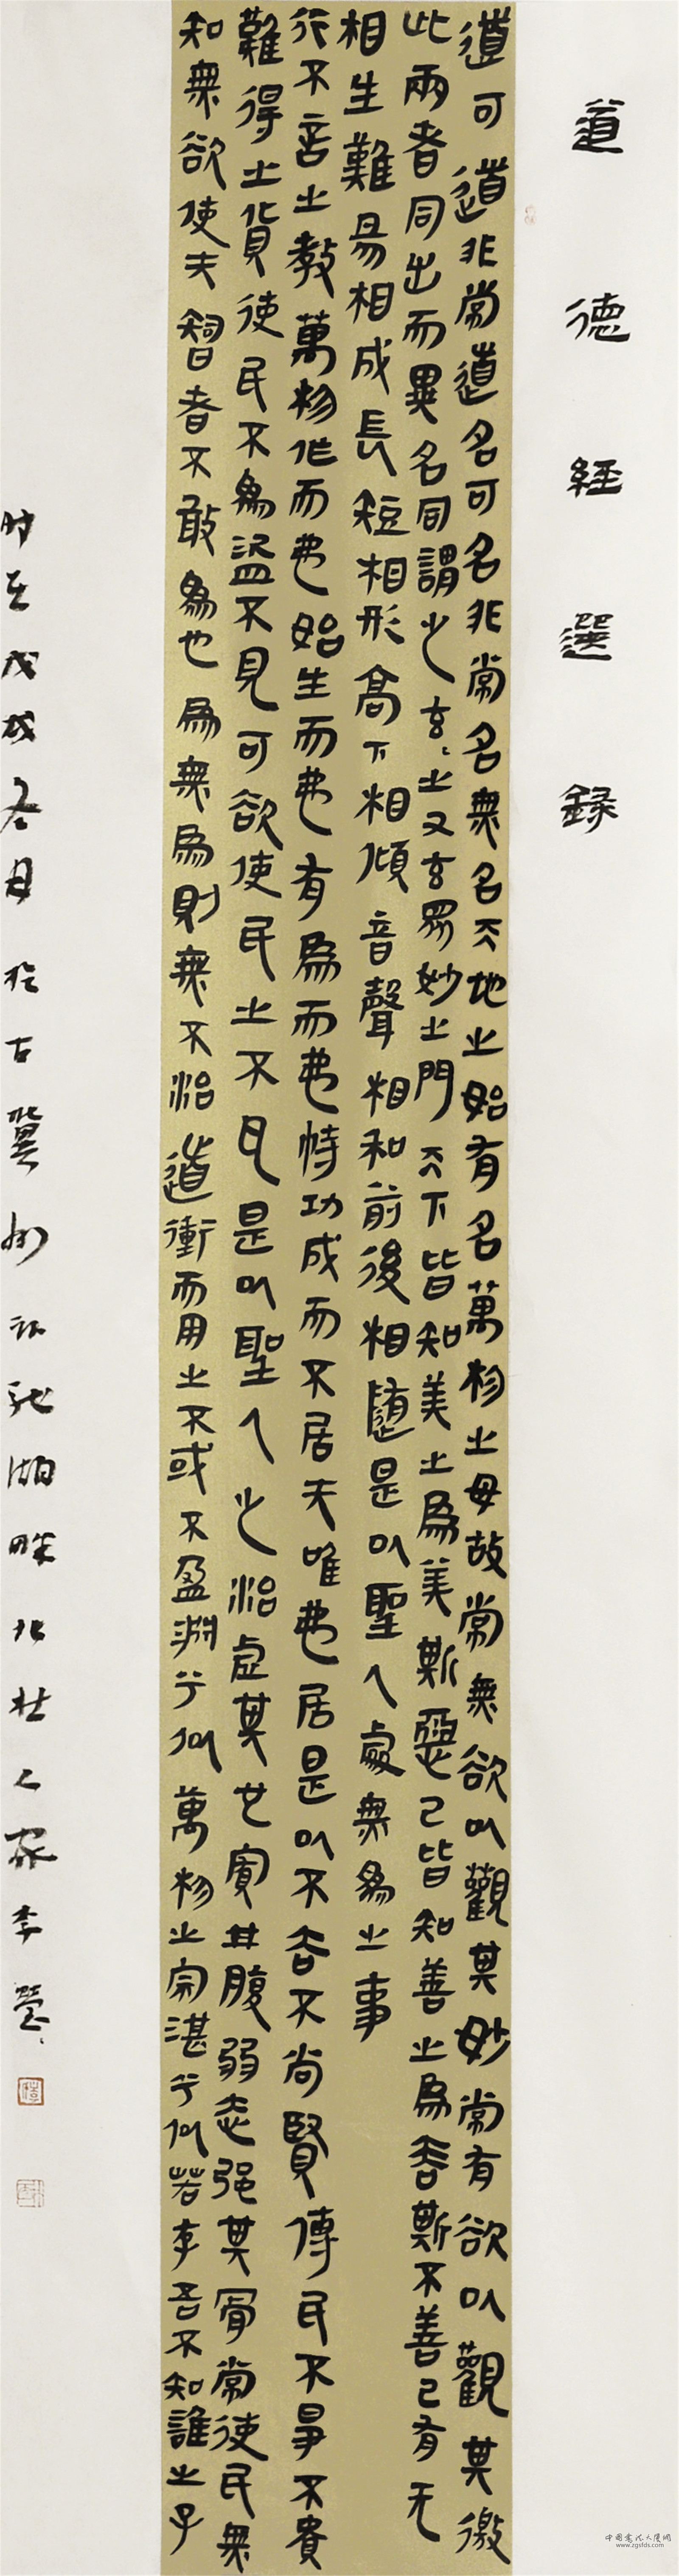 道德經選錄
道可道非常道名可名非常名無名天地之始有名萬物之母故常無欲以觀其妙常有欲以觀其徼
此兩者同出而異名同謂之玄玄之又玄眾妙之門天下皆知美之為美斯惡已皆知善之為善斯不善已有无
相生難易相成長短相形高下相傾音聲相和前後相隨是以聖人處無為之事
行不言之教萬物作而弗始生而弗有為而弗恃功成而不居夫唯弗居是以不去不尚賢使民不爭不貴
難得之貨使民不為盜不見可欲使民心不亂是以聖人之治虛其心實其腹弱志強其骨常使民無
知無欲使夫智者不敢為也為無為則無不治道衝而用之不或不盈淵兮似萬物之宗湛兮似若存吾不知誰之子
時在戊戌冬月於古冀州湖畔北杜人家李瑩
中国书法大厦网
www.zgsfds.com